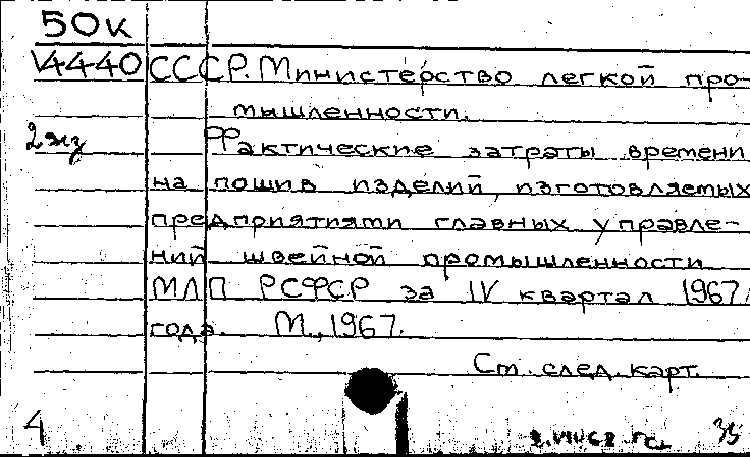 50к
V4440 СССР. Министерство легкой про-
мышленности.
2 экз Фактические затраты времени
на пошив изделий, изготовляемых
предприятиями главных управле-
ний швейной промышленности
МЛП РСФСР за IV квартал 1967
года. М., 1967.
См. след. карт.
4